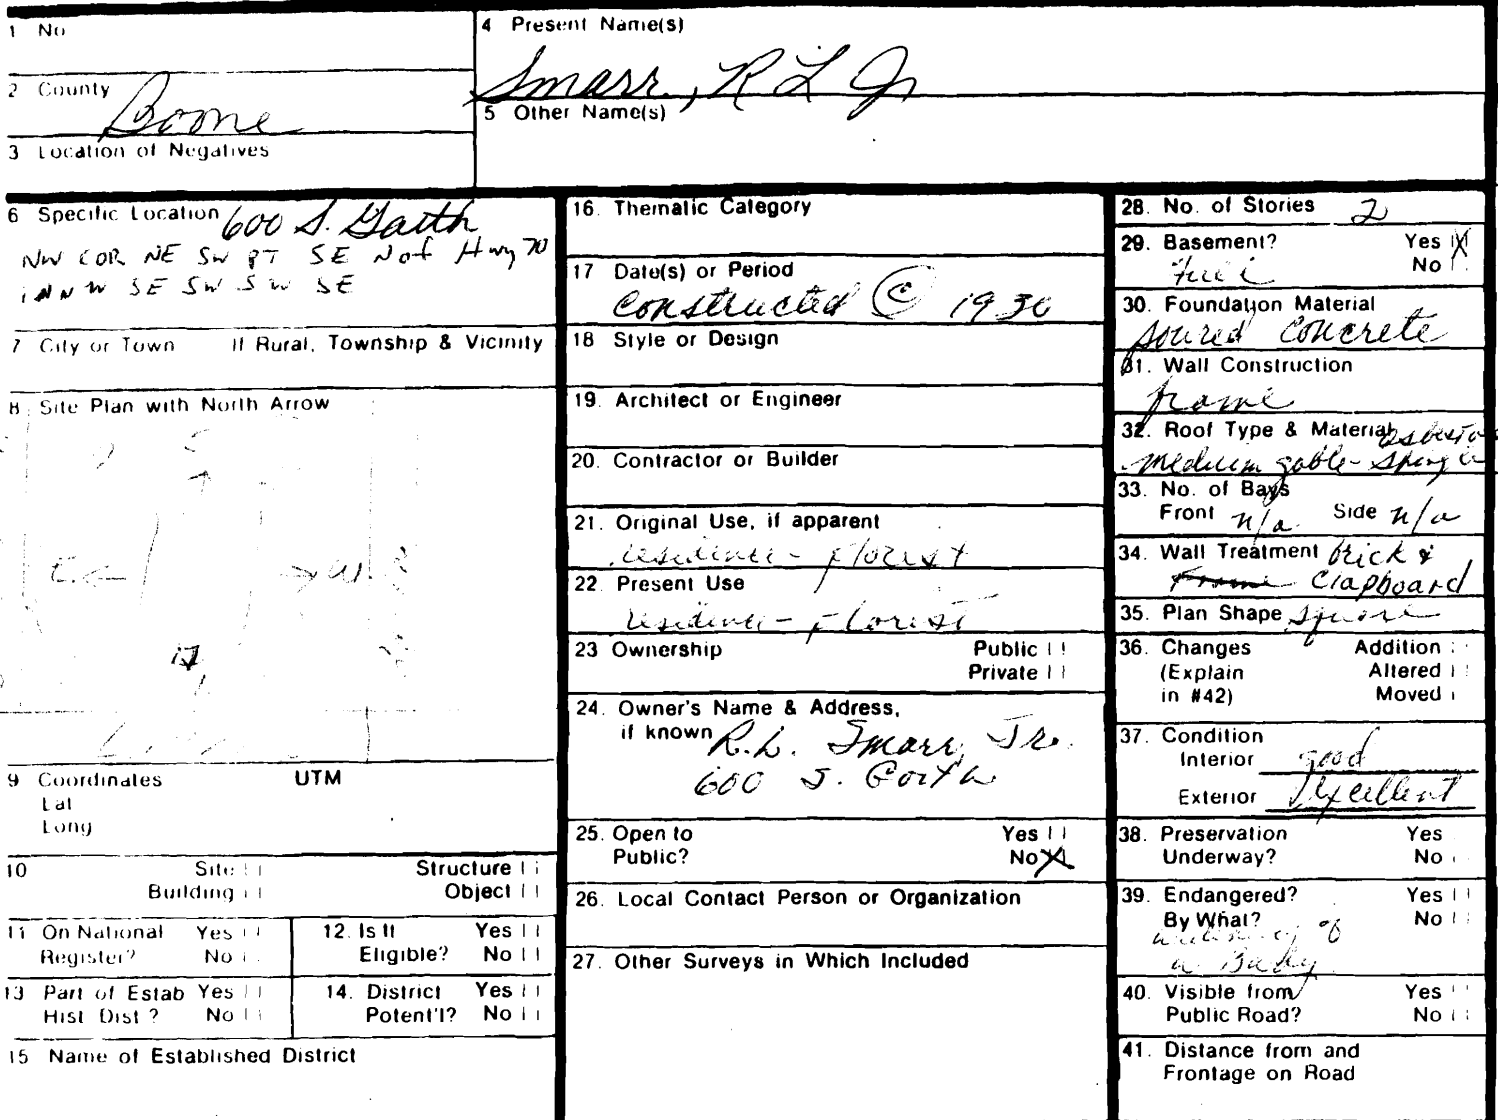 1 No
4 Present Name(s)
Smarr, R L Jr
2 County
Boone
5 Other Name(s)
3 Location of Negatives
6 Specific Location 600 S. Garth
NW COR NE SW PT SE N of Hwy 70
in NW SE SW SW SE
7 City or Town If Rural, Township & Vicinity
8. Site Plan with North Arrow
S
E W
N
9 Coordinates UTM
Lat
Long
10 Site Structure
Building Object
11 On National Register? Yes No
12. Is It Eligible? Yes No
13 Part of Estab Hist Dist? Yes No
14. District Potent'l? Yes No
15 Name of Established District
16. Thematic Category
17 Date(s) or Period
constructed © 1930
18 Style or Design
19. Architect or Engineer
20. Contractor or Builder
21. Original Use, if apparent
residence - florist
22. Present Use
residence - florist
23 Ownership Public
Private
24. Owner's Name & Address,
if known R.L. Smarr, Jr.
600 S. Garth
25. Open to Yes
Public? No X
26. Local Contact Person or Organization
27. Other Surveys in Which Included
28. No. of Stories 2
29. Basement? Yes X
Full No
30. Foundation Material
poured concrete
31. Wall Construction
frame
32. Roof Type & Material asbestos
medium gable - shingle
33. No. of Bays
Front n/a. Side n/a
34. Wall Treatment brick &
Frame Clapboard
35. Plan Shape square
36. Changes Addition
(Explain Altered
in #42) Moved
37. Condition
Interior good
Exterior Excellent
38. Preservation Yes
Underway? No
39. Endangered? Yes
By What? No
widening of
40. Visible from Yes
Public Road? No
41. Distance from and
Frontage on Road